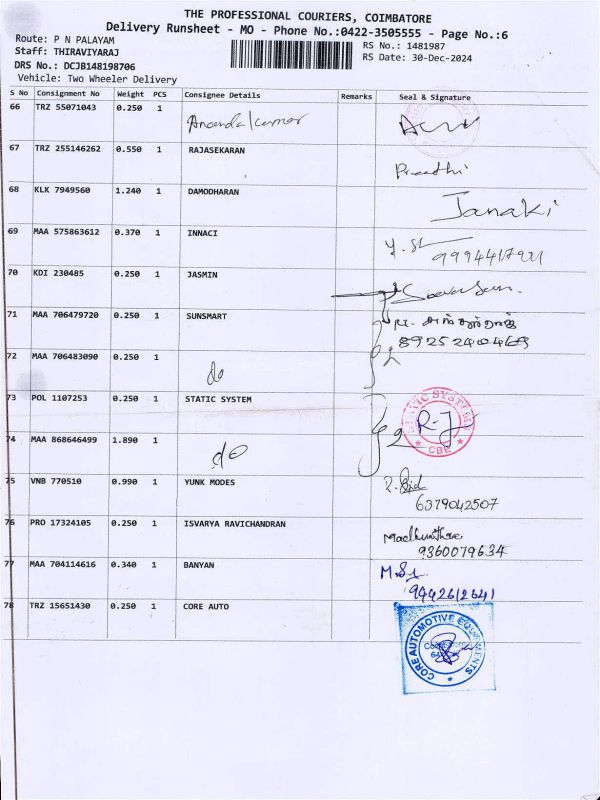 THE PROFESSIONAL COURIERS, COIMBATORE
Delivery Runsheet - MO - Phone No.:0422-3505555 - Page No.:6
Route: P N PALAYAM
RS No.: 1481987
Staff: THIRAVIYARAJ
RS Date: 30-Dec-2024
DRS No.: DCJB148198706
Vehicle: Two Wheeler Delivery
S No Consignment No Weight PCS Consignee Details Remarks Seal & Signature
66 TRZ 55071043 0.250 1 Anandakumar
67 TRZ 255146262 0.550 1 RAJASEKARAN Preethi
68 KLK 7949560 1.240 1 DAMODHARAN Janaki
69 MAA 575863612 0.370 1 INNACI
70 KDI 230485 0.250 1 JASMIN
71 MAA 706479720 0.250 1 SUNSMART
8925240469
72 MAA 706483090 0.250 1 do 2
73 POL 1107253 0.250 1 STATIC SYSTEM STATIC SYSTEMS CBE R-J
74 MAA 868646499 1.890 1 do 2
75 VNB 770510 0.990 1 YUNK MODES
6379042507
76 PRO 17324105 0.250 1 ISVARYA RAVICHANDRAN
9360079634
77 MAA 704114616 0.340 1 BANYAN
9442612641
78 TRZ 15651430 0.250 1 CORE AUTO
CORE AUTOMOTIVE EQUIPMENTS